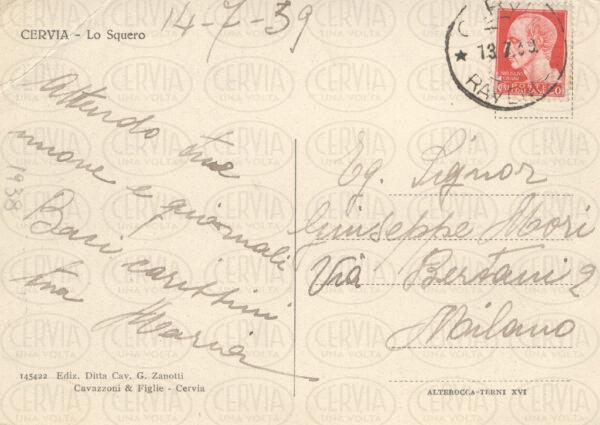 14-7-39
CERVIA - Lo Squero
CERVIA
13.7.39
RAVENNA
Attendo tue
nuove e giornali
Baci carissimi
tua Maria
1938
Eg. Signor
Giuseppe Mori
Via Bertani 2
Milano
145422 Ediz. Ditta Cav. G. Zanotti
Cavazzoni & Figlie - Cervia
ALTEROCCA-TERNI XVI
CERVIA
UNA VOLTA